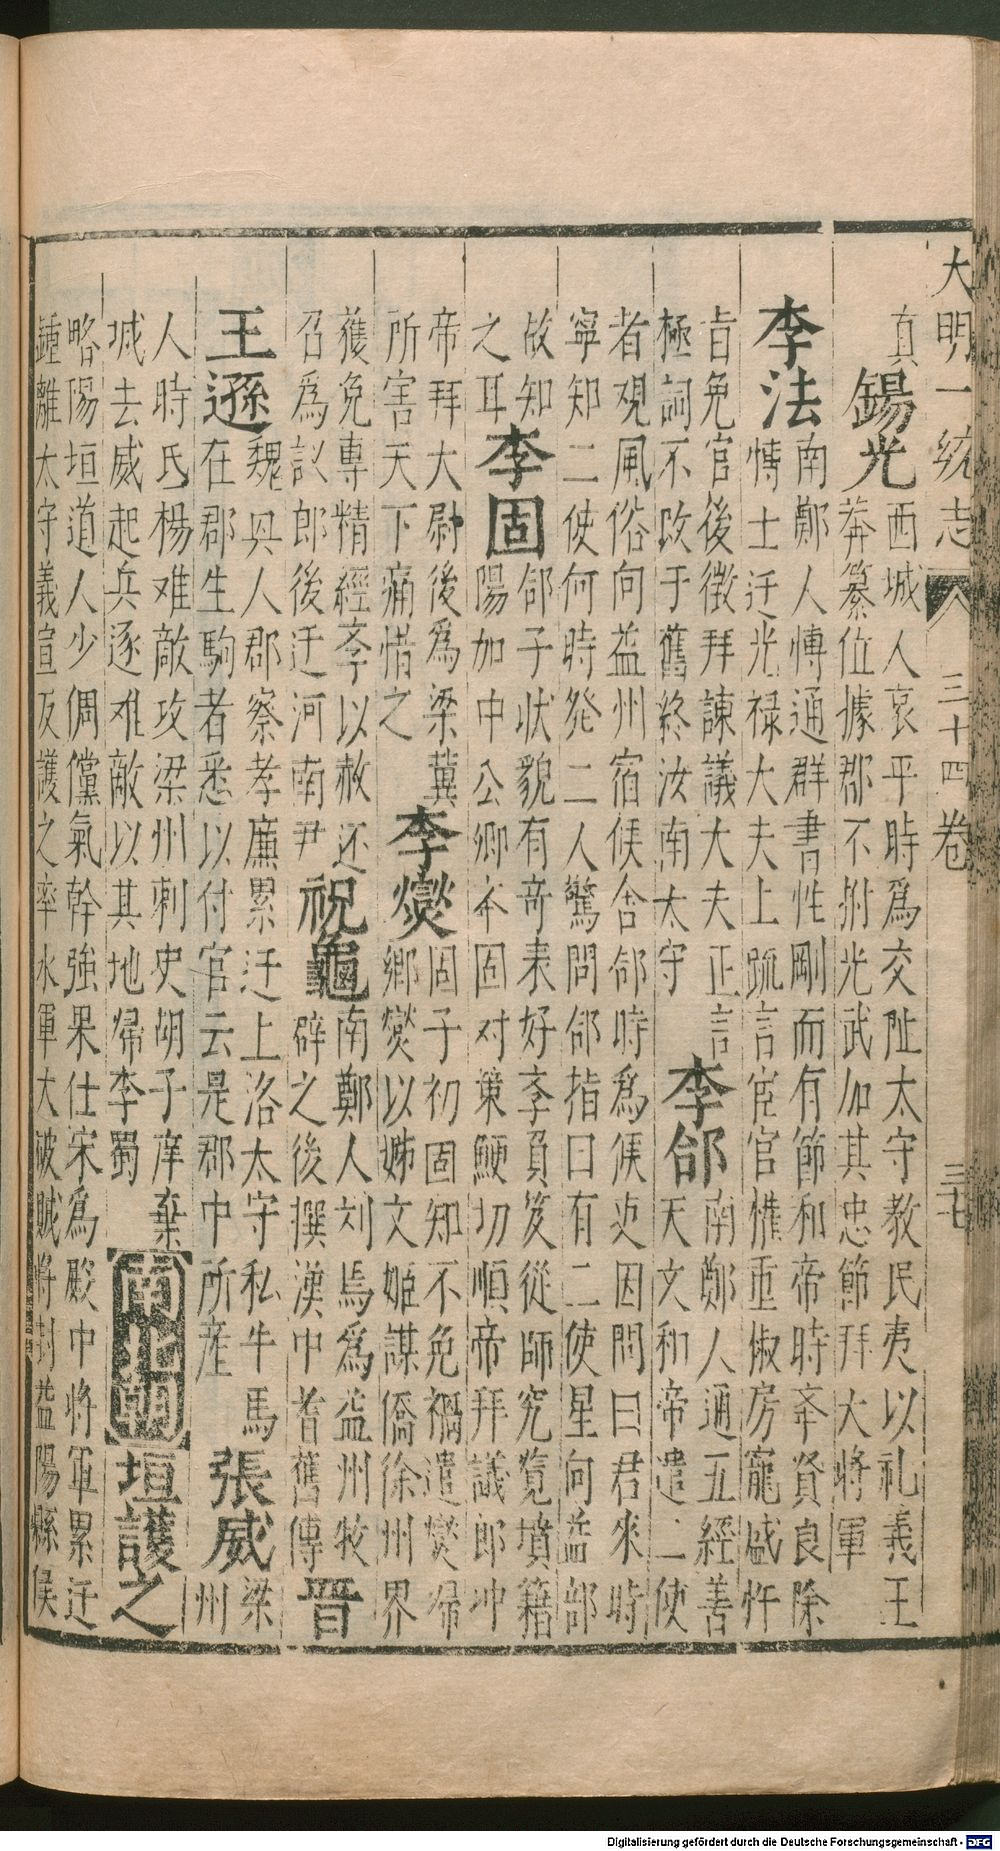 大明一統志 三十四卷 三十七
真 錫光 西城人哀平時為交阯太守教民夷以礼義王
莽篡位據郡不附光武加其忠節拜大將軍
李法 南鄭人博通群書性剛而有節和帝時奉資良除
博士迁光禄大夫上䟽言宦官權重椒房寵盛忤
旨免官後徵拜諫議大夫正言
極詞不改于舊終汝南太守 李郃 南鄭人通五經善
天文和帝遣二使
者观風俗向益州宿侯舎郃時為侯吏因問曰君來時
寧知二使何時発二人驚問郃指曰有二使星向益部
故知
之耳 李固 郃子状貌有竒表好孝負笈從師究覧墳籍
陽加中公卿本固对策鯁切順帝拜議郎冲
帝拜大尉後為梁冀
所害天下痛惜之 李燮 固子初固知不免禍遣燮帰
郷燮以姊文姬謀僑徐州界
獲免專精經孝以赦还
召為議郎後迁河南尹 祝龜 南鄭人刘焉為益州牧
辟之後撰漢中耆舊傳 晋
王遜 魏㒷人郡察孝廉累迁上洛太守私牛馬
在郡生駒者悉以付官云是郡中所産 張威 梁
州
人時氐楊难敵攻梁州刺史胡子庠棄
城去威起兵逐难敵以其地帰李蜀 南北朝 垣護之
略陽垣道人少倜儻氣幹強果仕宋為殿中將軍累迁
鍾離太守義宣反護之率水軍大破賊將封益陽縣侯
Digitalisierung gefördert durch die Deutsche Forschungsgemeinschaft - DFG